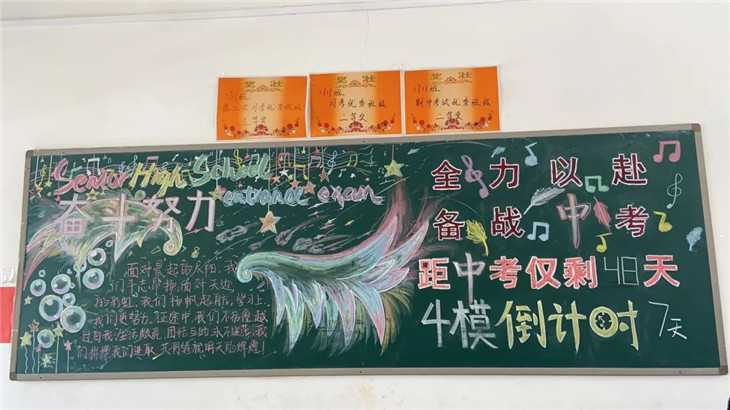 奖 状
171班
第二次月考优秀班级
三等奖
奖 状
171班
月考优秀班级
二等奖
奖 状
171班
期中考试优秀班级
二等奖
Senior High School
entrance exam
奋斗努力
面对晨起的太阳,我
们斗志昂扬,面对天边
的彩虹,我们扬帆起航,学习上
我们更努力,征途中我们不仿徨越
过自我,生活敞亮,团结互助永不
们将携我们进取 共同铸就明天的辉煌!
全力以赴
备战中考
距中考仅剩48天
4模倒计时7天